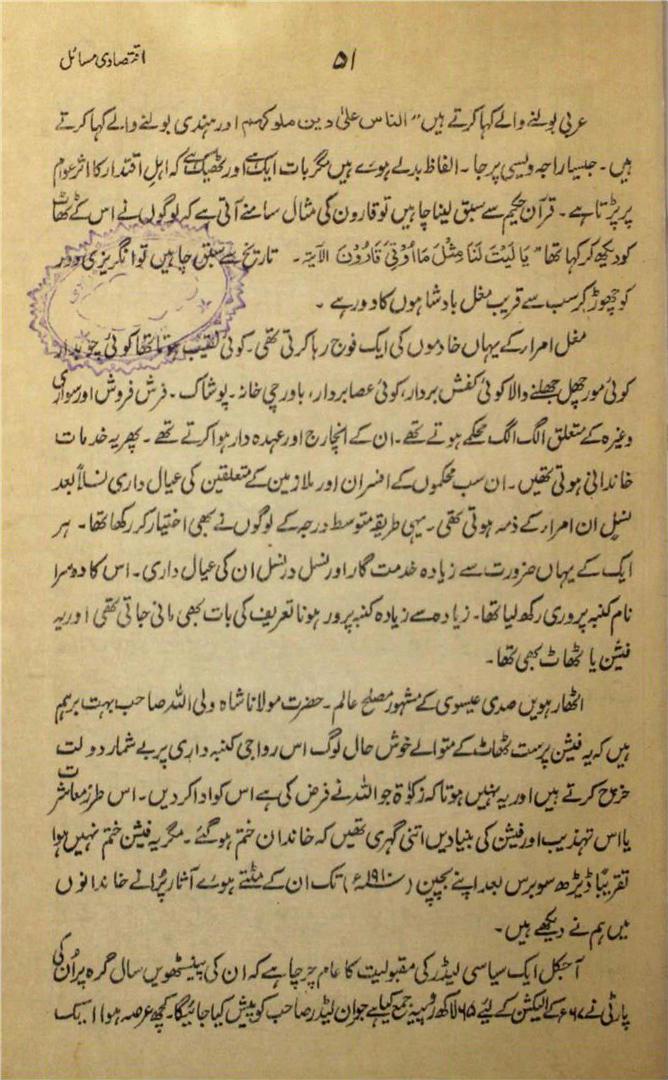 ۵۱
اقتصادی مسائل
عربی بولنے والے کہا کرتے ہیں "الناس علیٰ دین ملوکہم اور ہندی بولنے والے کہا کرتے
ہیں۔ جیسا راجہ ویسی پرجا۔ الفاظ بدلے ہوئے ہیں مگر بات ایک ہے اور ٹھیک ہے کہ اہل اقتدار کا اثر عوام
پر پڑتا ہے۔ قرآن حکیم سے سبق لینا چاہیں تو قارون کی مثال سامنے آتی ہے کہ لوگوں نے اس کے ٹھاٹ
کو دیکھ کر کہا تھا "یَا لَیْتَ لَنَا مِثْلَ مَا اُوْتِیَ قَارُوْنَ الآیۃ۔ تاریخ سے سبق چاہیں تو انگریزی دور
کو چھوڑ کر سب سے قریب مغل بادشاہوں کا دور ہے ۔
مغل امراء کے یہاں خادموں کی ایک فوج رہا کرتی تھی۔ کوئی نقیب ہوتا تھا کوئی چوبدار
کوئی مورچھل جھلنے والا کوئی کفش بردار، کوئی عصا بردار، باورچی خانہ۔ پوشاک۔ فرش فروش اور سواری
وغیرہ کے متعلق الگ الگ محکمے ہوتے تھے۔ ان کے انچارج اور عہدہ دار ہوا کرتے تھے۔ پھر یہ خدمات
خاندانی ہوتی تھیں۔ ان سب محکموں کے افسران اور ملازمین کے متعلقین کی عیال داری نسلاً بعد
نسلٍ ان امراء کے ذمہ ہوتی تھی۔ یہی طریقہ متوسط درجہ کے لوگوں نے بھی اختیار کر رکھا تھا۔ ہر
ایک کے یہاں ضرورت سے زیادہ خدمت گار اور نسل در نسل ان کی عیال داری۔ اس کا دوسرا
نام کنبہ پروری رکھ لیا تھا۔ زیادہ سے زیادہ کنبہ پرور ہونا تعریف کی بات بھی مانی جاتی تھی اور یہ
فیشن یا ٹھاٹ بھی تھا۔
اٹھارہویں صدی عیسوی کے مشہور مصلح عالم۔ حضرت مولانا شاہ ولی اللہ صاحب بہت برہم
ہیں کہ یہ فیشن پرست ٹھاٹ کے متوالے خوش حال لوگ اس رواجی کنبہ داری پر بے شمار دولت
خرچ کرتے ہیں اور یہ نہیں ہوتا کہ زکوٰۃ جو اللہ نے فرض کی ہے اس کو ادا کر دیں۔ اس طرز معاشرت
یا اس تہذیب اور فیشن کی بنیادیں اتنی گہری تھیں کہ خاندان ختم ہو گئے۔ مگر یہ فیشن ختم نہیں ہوا
تقریباً ڈیڑھ سو برس بعد اپنے بچپن (۱۹۱۰ء) تک ان کے مٹتے ہوئے آثار پرانے خاندانوں
میں ہم نے دیکھے ہیں۔
آجکل ایک سیاسی لیڈر کی مقبولیت کا عام چرچا ہے کہ ان کی پینسٹھویں سال گرہ پر ان کی
پارٹی نے ۶۷ء کے الیکشن کے لئے ۶۵ لاکھ روپیہ جمع کیا ہے جو ان لیڈر صاحب کو پیش کیا جائیگا۔ کچھ عرصہ ہوا ایک